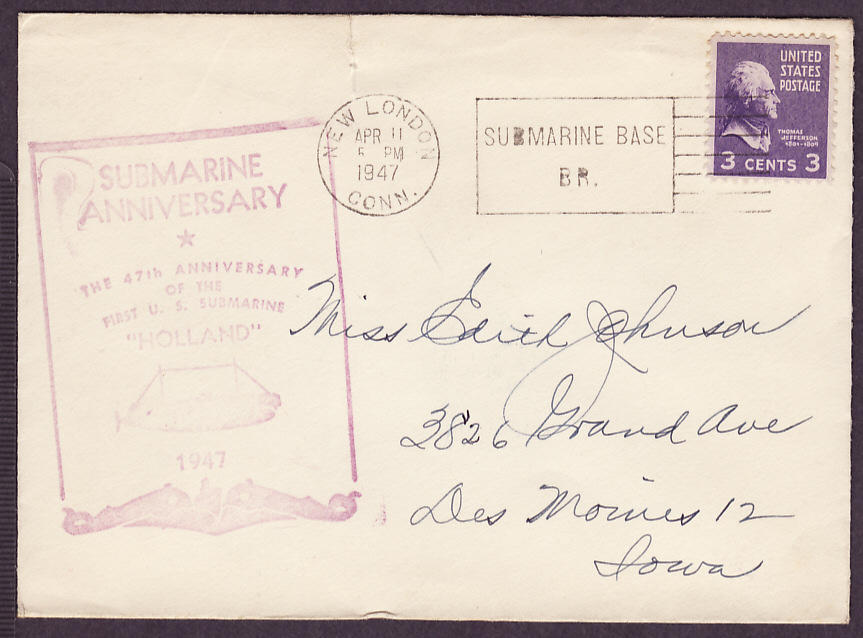 SUBMARINE
ANNIVERSARY
THE 47th ANNIVERSARY
OF THE
FIRST U. S. SUBMARINE
"HOLLAND"
1947
NEW LONDON
APR 11
5 PM
1947
CONN.
SUBMARINE BASE
BR.
UNITED
STATES
POSTAGE
THOMAS
JEFFERSON
1801-1809
3 CENTS 3
Miss Edith Johnson
3826 Grand Ave
Des Moines 12
Iowa